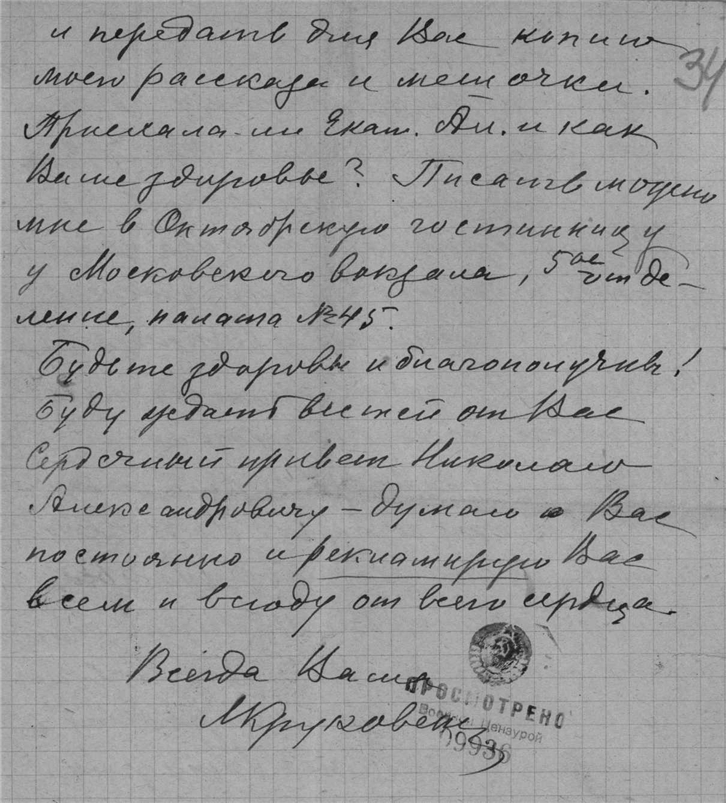 и передать для Вас копию
34
моего рассказа и мешочки.
Приехала-ли Екат. Ал. и как
Ваше здоровье? Писать можно
мне в Октябрьскую гостинницу
у Московского вокзала, 5ое отде-
ление, палата № 45.
Будьте здоровы и благополучны!
Буду ждать вестей от Вас
Сердечный привет Николаю
Александровичу – думаю о Вас
постоянно и рекламирую Вас
всем и всюду от всего сердца.
Всегда Ваша
ПРОСМОТРЕНО
Военной Цензурой
09936